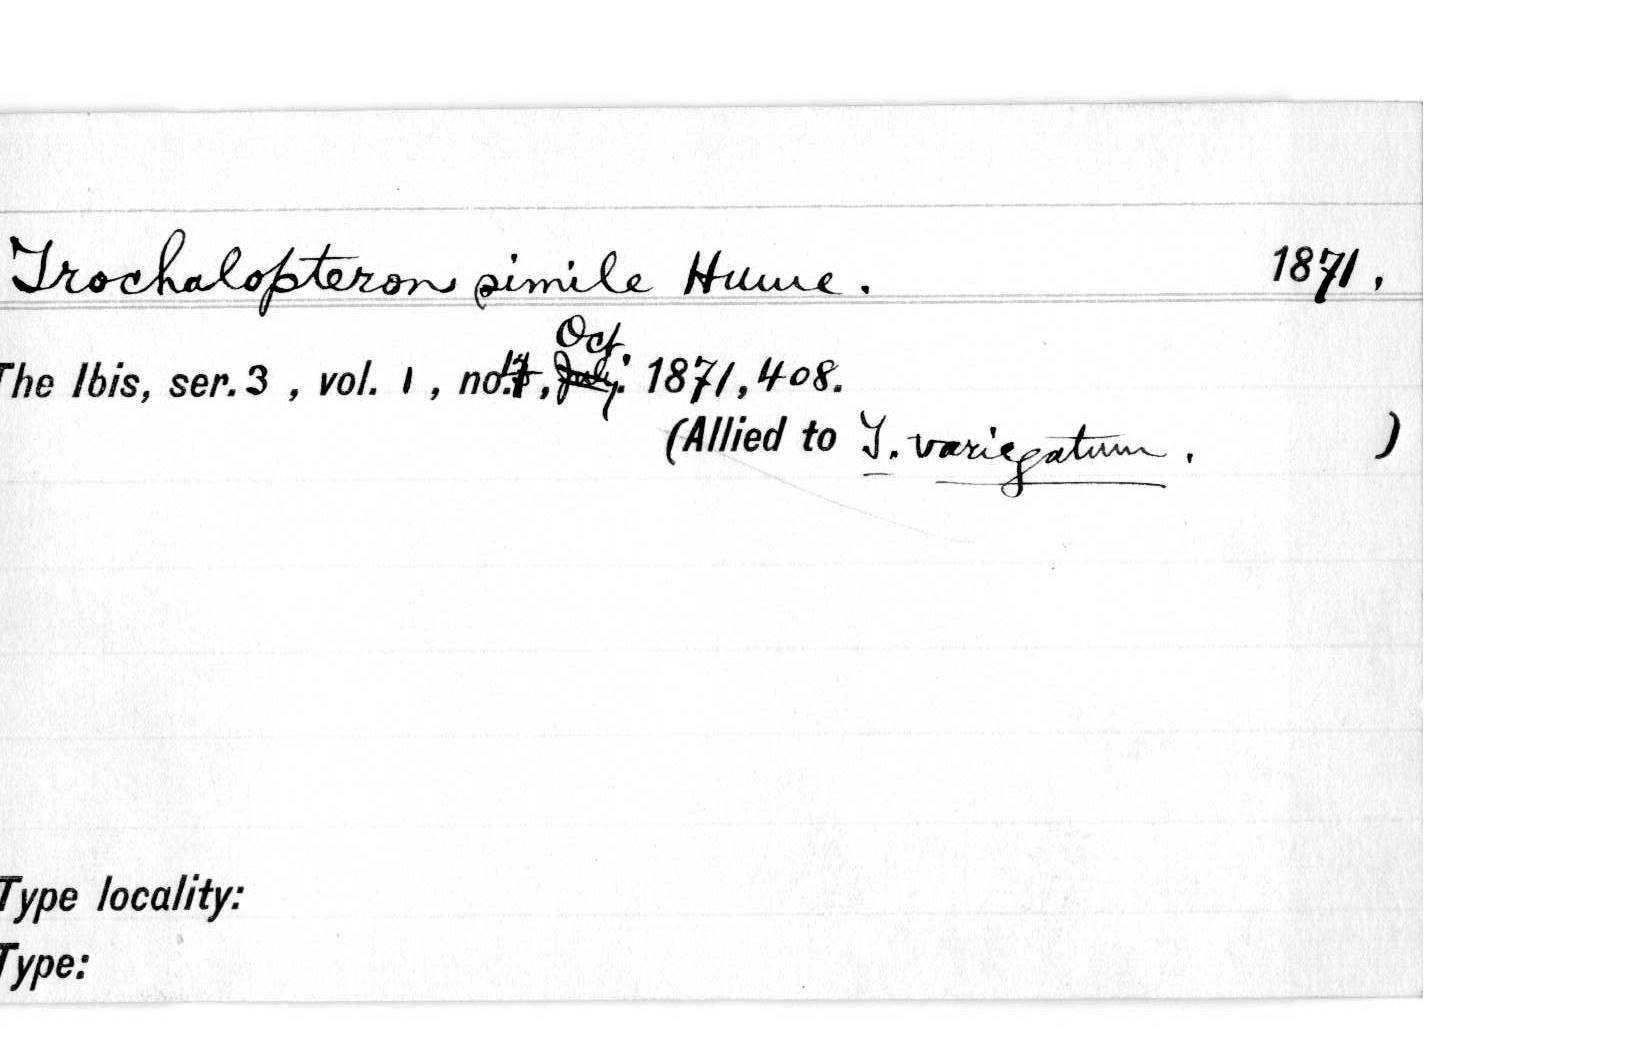 Trochalopteron simile Hume. 1871.
The Ibis, ser. 3, vol. 1, no. 4, Oct. 1871, 408.
(Allied to T. variegatum. )
Type locality:
Type: